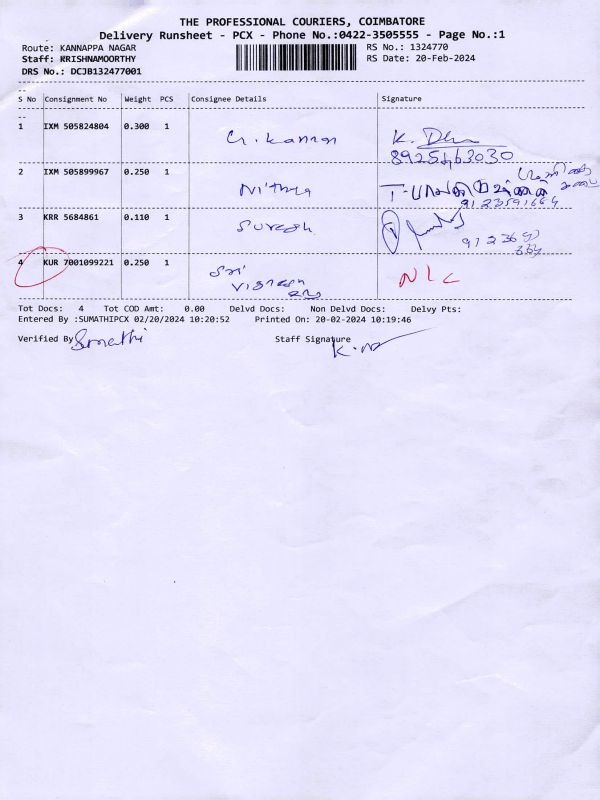 THE PROFESSIONAL COURIERS, COIMBATORE
Delivery Runsheet - PCX - Phone No.:0422-3505555 - Page No.:1
Route: KANNAPPA NAGAR
RS No.: 1324770
Staff: KRISHNAMOORTHY
RS Date: 20-Feb-2024
DRS No.: DCJB132477001
S No Consignment No Weight PCS Consignee Details Signature
1 IXM 505824804 0.300 1 G. Kannan K.
8925463030
2 IXM 505899967 0.250 1 Nithya
9123591664
3 KRR 5684861 0.110 1 Suresh
4 KUR 7001099221 0.250 1 Sri NLC
Vignesh
Tot Docs: 4 Tot COD Amt: 0.00 Delvd Docs: Non Delvd Docs: Delvy Pts:
Entered By :SUMATHIPCX 02/20/2024 10:20:52 Printed On: 20-02-2024 10:19:46
Verified By Sumathi Staff Signature